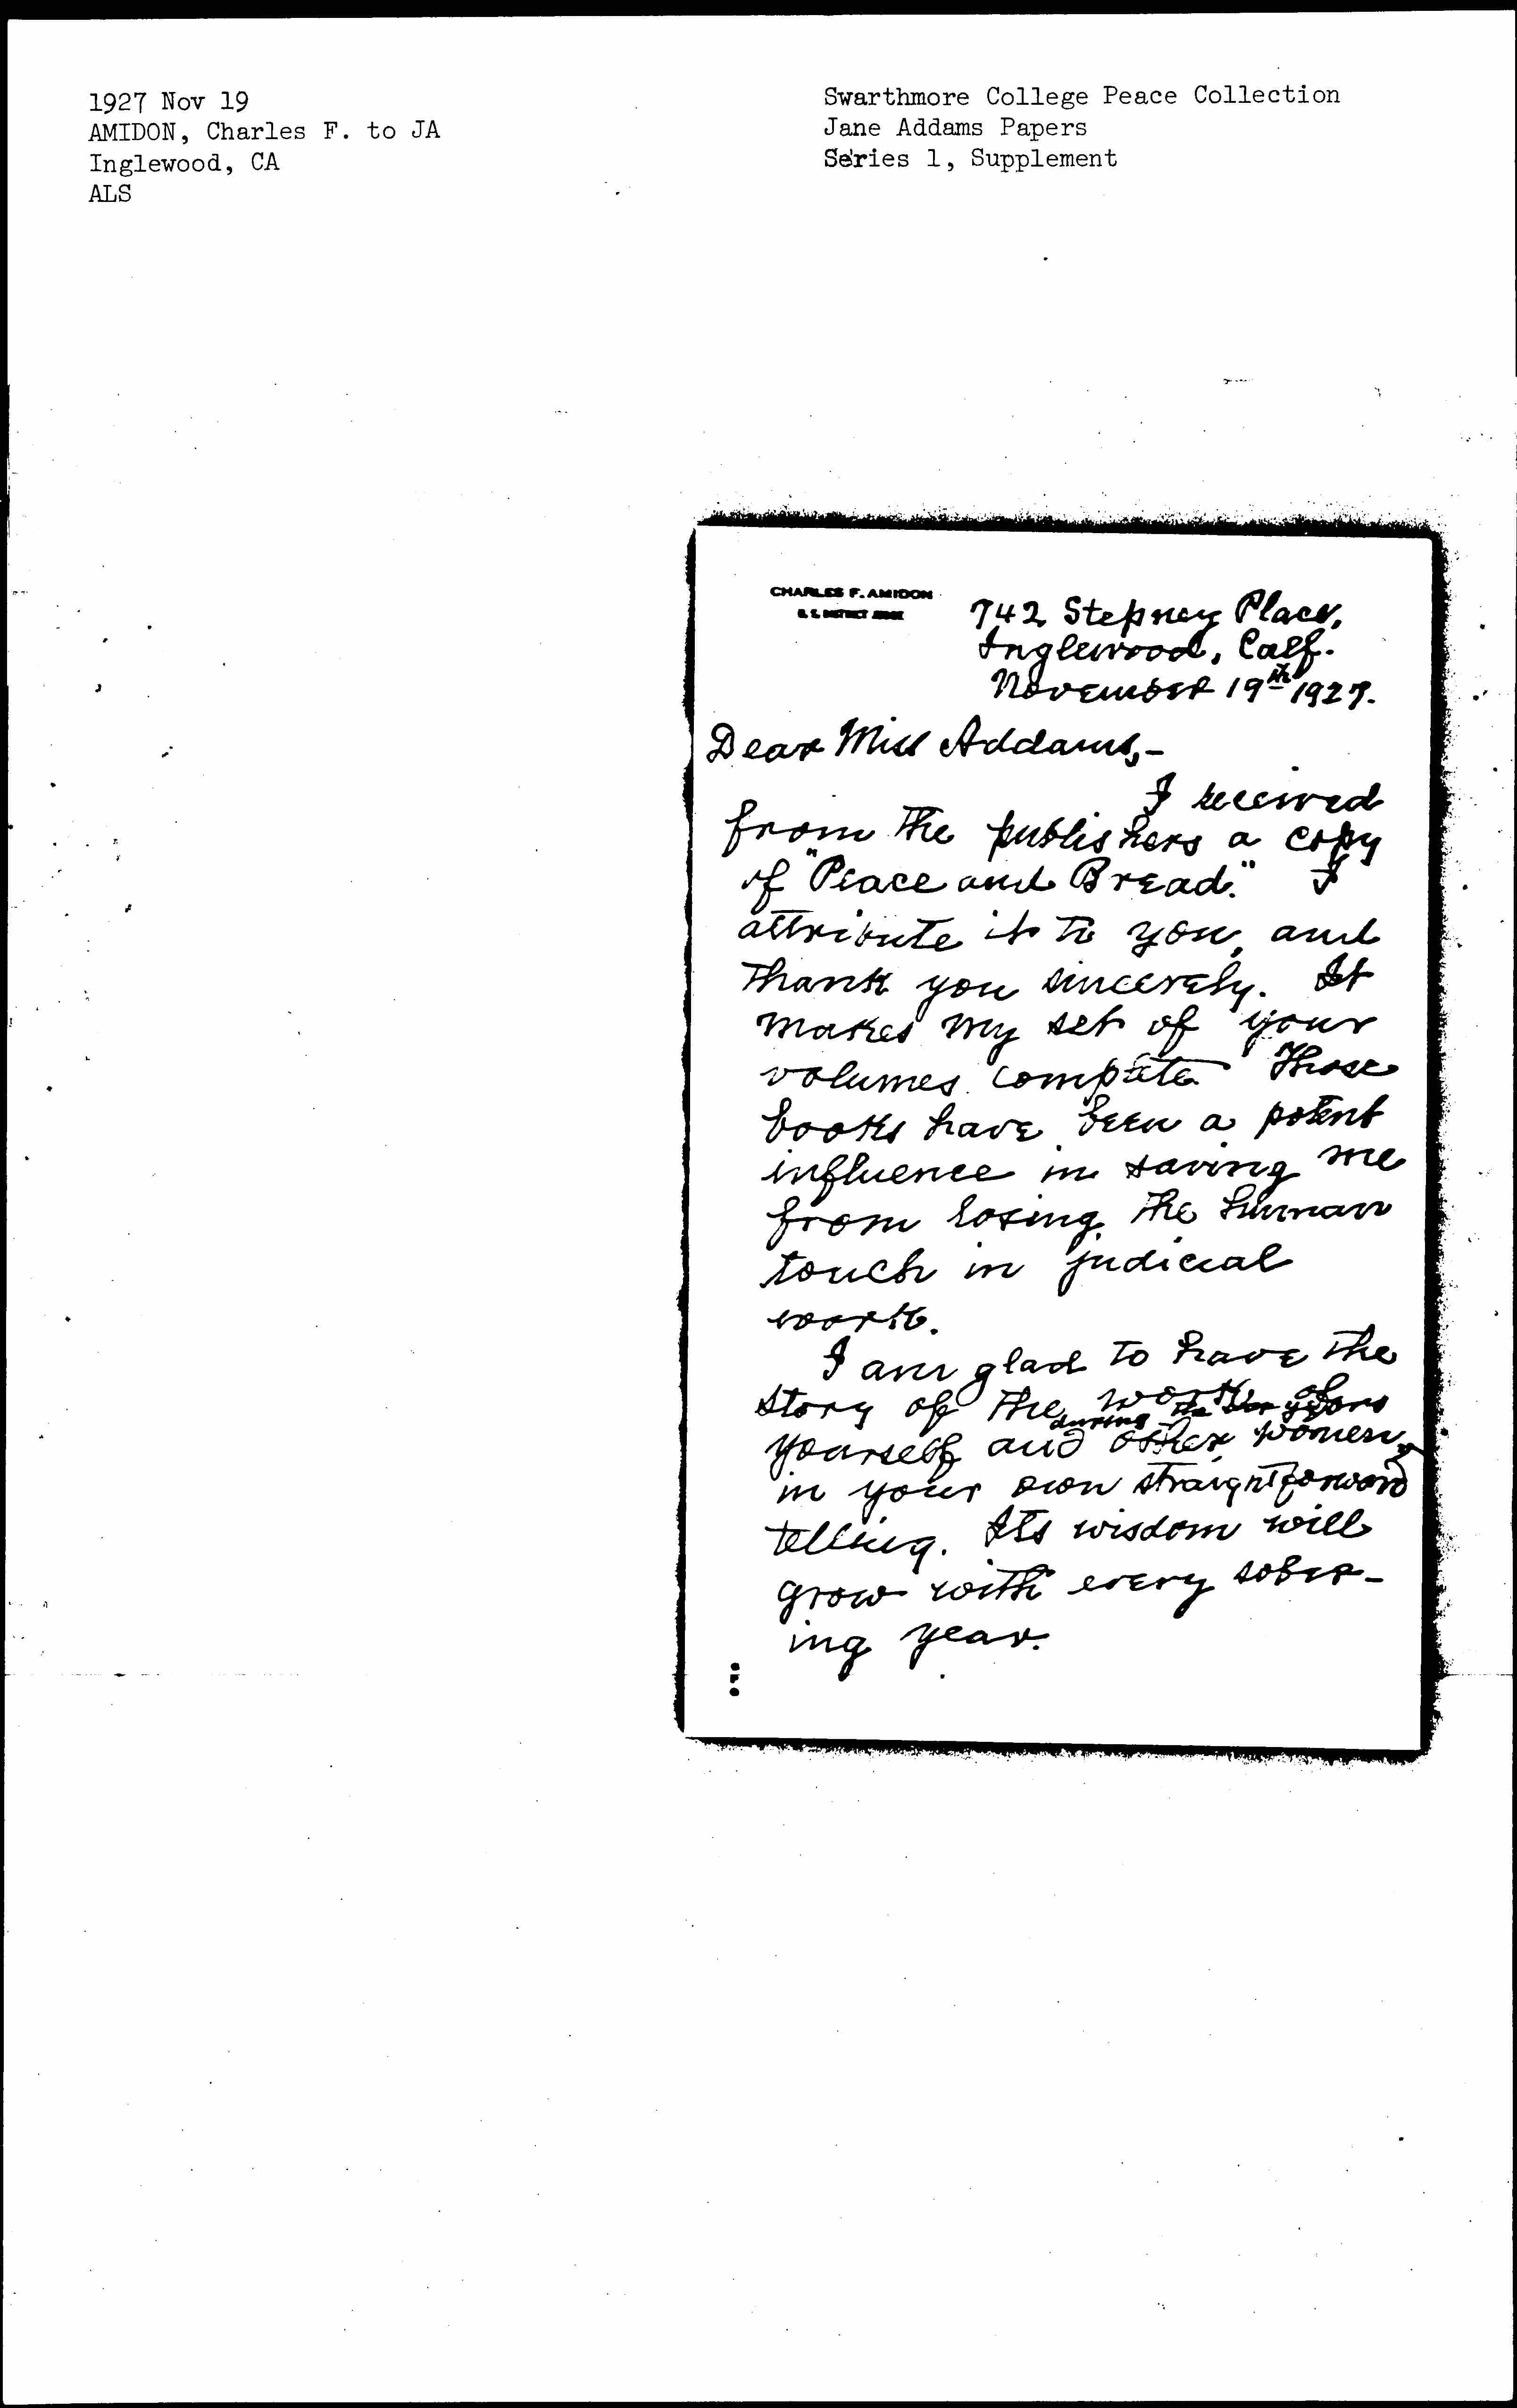 1927 Nov 19
AMIDON, Charles F. to JA
Inglewood, CA
ALS
Swarthmore College Peace Collection
Jane Addams Papers
Series 1, Supplement
CHARLES F. AMIDON
U. S. DISTRICT JUDGE
742 Stepney Place,
Inglewood, Calf.
November 19th 1927.
Dear Miss Addams,-
I received
from the publishers a copy
of "Peace and Bread." I
attribute it to you, and
thank you sincerely. It
makes my set of your
volumes complete. Those
books have been a potent
influence in saving me
from losing the human
touch in judicial
work.
I am glad to have the
story of the work of
during the war years
yourself and other women,
in your own straightforward
telling. Its wisdom will
grow with every sober-
ing year.